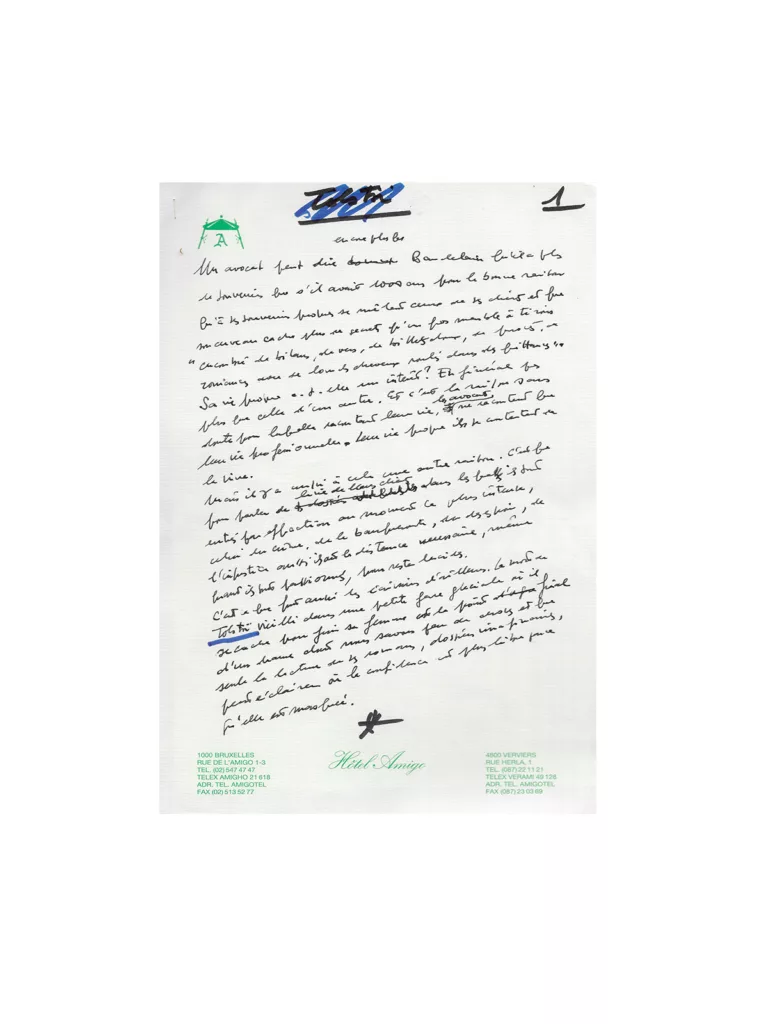 Tolstoï
1
encore plus
Un avocat peut dire Baudelaire qu'il a plus
de souvenirs que s'il avait 1000 ans pour la bonne raison
qu'à ses souvenirs propres se mêlent ceux de ses clients et que
son cerveau cache plus de secrets qu'un gros meuble à tiroirs
"encombré de bilans, de vers, de billets doux, de procès, de
romances avec de lourds cheveux roulés dans des quittances"
Sa vie propre a-t-elle un intérêt? En général pas
plus que celle d'un autre. Et c'est la raison sans
doute pour laquelle racontant leur vie, les avocats ne racontent que
leur vie professionnelle. Leur vie propre ils se contentent de
la vivre.
Mais il y a aussi à cela une autre raison. C'est que
pour parler de la vie de leurs clients dans les ils sont
entrés par effraction au moment le plus intense,
celui du crime, de la banqueroute, du désespoir, de
l'injustice ils ont la distance nécessaire, même
quand ils sont passionnés, pour rester lucides.
C'est ce que font aussi les écrivains d'ailleurs. La mort de
Tolstoï vieilli dans une petite gare glaciale où il
se cache pour fuir sa femme est le point final
d'un drame dont nous savons peu de choses et que
seule la lecture de ses romans, dossiers
peut éclairer où la confidence est plus libre parce
qu'elle est masquée.
A
1000 BRUXELLES
RUE DE L'AMIGO 1-3
TEL. (02) 547 47 47
TELEX AMIGHO 21 618
ADR. TEL. AMIGOTEL
FAX (02) 513 52 77
Hôtel Amigo
4800 VERVIERS
RUE HERLA, 1
TEL. (087) 22 11 21
TELEX VERAMI 49 128
ADR. TEL. AMIGOTEL
FAX (087) 23 03 69